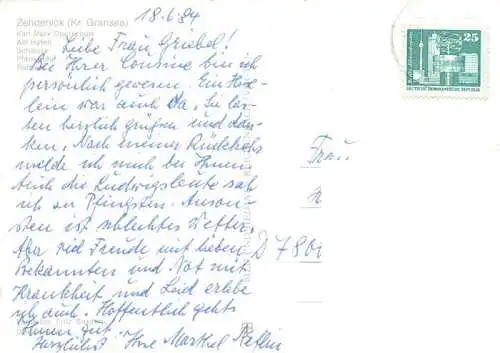 Zehdenick (Kr. Gransee)
18.6.84
Karl-Marx-
Am Hafen
Schleuse
Liebe Frau Griebel!
Bei Ihrer Cousine bin ich
persönlich gewesen. Ein
lein war auch da. Sie las-
sen herzlich grüßen und dan-
ken. Nach meiner Rückkehr
melde ich mich bei Ihnen.
Auch die Ludwigsleute sah
ich zu Pfingsten. Anson-
sten ist schlechtes Wetter.
Aber viel Freude mit lieben
Bekannten und Not mit
Krankheit und Leid erlebe
ich auch. Hoffentlich geht's
Ihnen gut.
Herzlichst Ihre
25
DEUTSCHE DEMOKRATISCHE REPUBLIK
Frau
D 7801